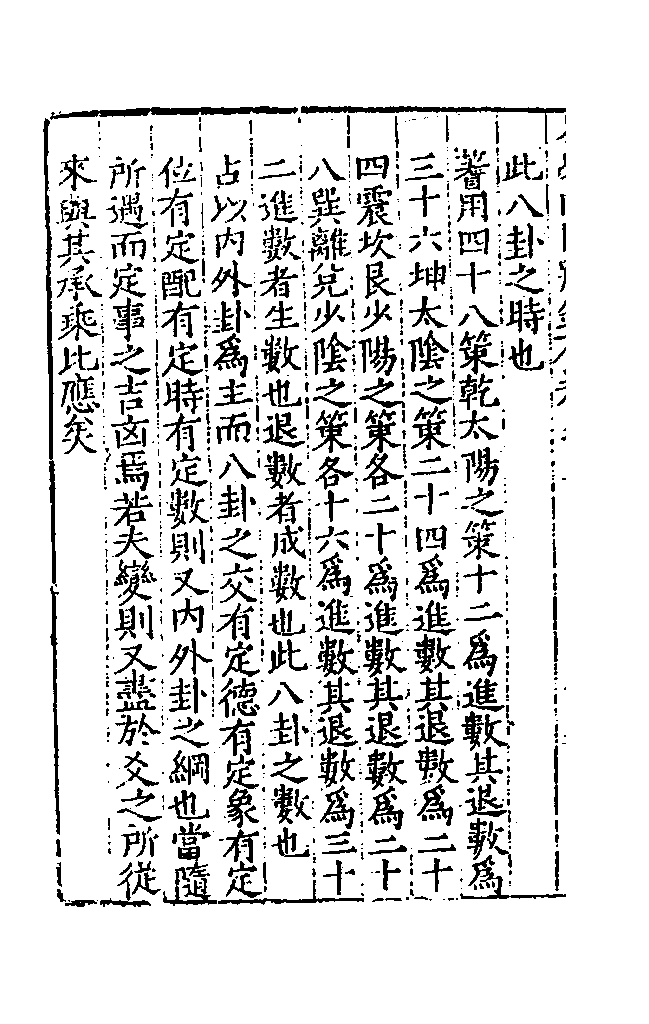 此八卦之時也
蓍用四十八策乾太陽之策十二爲進數其退數爲
三十六坤太陰之策二十四爲進數其退數爲二十
四震坎艮少陽之策各二十爲進數其退數爲二十
八巽離兌少陰之策各十六爲進數其退數爲三十
二進數者生數也退數者成數也此八卦之數也
占以内外卦爲主而八卦之交有定德有定象有定
位有定配有定時有定數則又内外卦之綱也當隨
所遇而定事之吉凶焉若夫變則又盡於爻之所從
來與其承乘比應矣